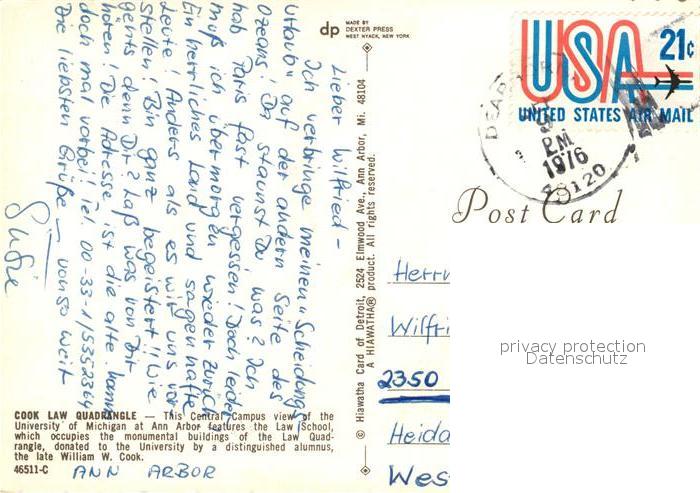 dp MADE BY
DEXTER PRESS
WEST NYACK, NEW YORK
Lieber Wilfried –
Ich verbringe meinen "Scheidungs-
urlaub" auf der andern Seite des
Ozeans! Da staunst Du was? Ich
hab Paris fast vergessen! Doch leider
muß ich übermorgen wieder zurück
Ein herrliches Land und sagenhafte
Leute! Anders als es wir uns vor-
stellen! Bin ganz begeistert!! Wie
gehts denn Dir? Laß was von Dir
hören! Die Adresse ist die alte komm
doch mal vorbei! Tel. 00-33-1/5352364
Die liebsten Grüße – von so weit
Susie
COOK LAW QUADRANGLE — This Central Campus view of the
University of Michigan at Ann Arbor features the Law School,
which occupies the monumental buildings of the Law Quad-
rangle, donated to the University by a distinguished alumnus,
the late William W. Cook.
46511-C
ANN ARBOR
© Hiawatha Card of Detroit, 2524 Elmwood Ave., Ann Arbor, Mi. 48104
A HIAWATHA® product. All rights reserved.
USA 21c
UNITED STATES AIR MAIL
PM
1976
48120
Post Card
Herrn
Wilfri
2350
Heida
Wes
privacy protection
Datenschutz